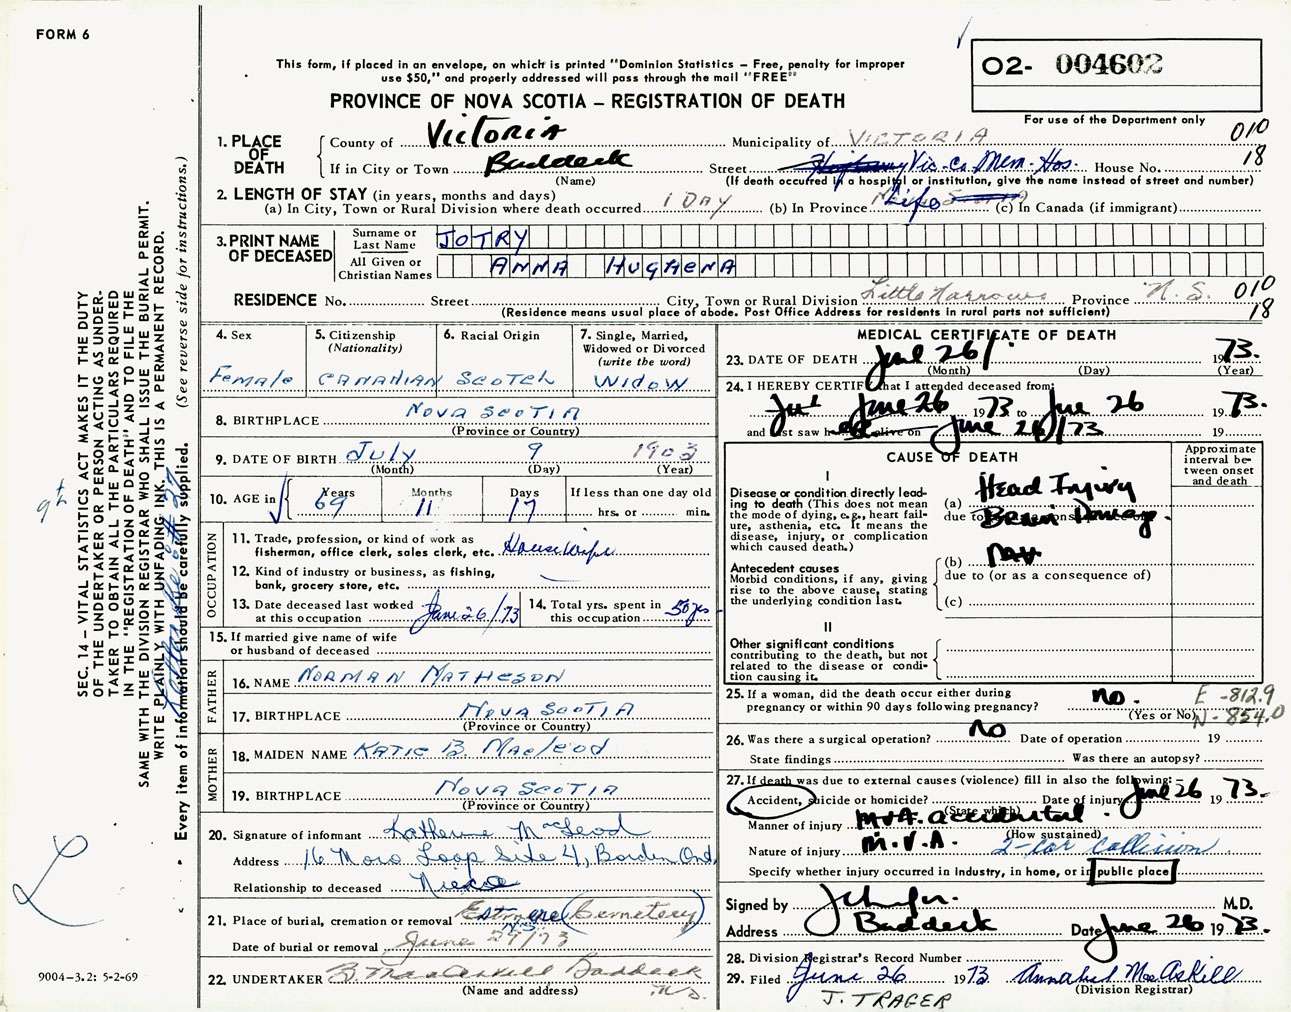 FORM 6
This form, if placed in an envelope, on which is printed "Dominion Statistics – Free, penalty for improper
use $50," and properly addressed will pass through the mail "FREE"
PROVINCE OF NOVA SCOTIA – REGISTRATION OF DEATH
O2- 004602
For use of the Department only
1. PLACE OF DEATH County of Victoria Municipality of VICTORIA 010
If in City or Town Baddeck Street Vic. Co. Mem. Hos. House No. 18
(Name) (If death occurred in a hospital or institution, give the name instead of street and number)
2. LENGTH OF STAY (in years, months and days)
(a) In City, Town or Rural Division where death occurred 1 DAY (b) In Province Life (c) In Canada (if immigrant)
3. PRINT NAME OF DECEASED Surname or Last Name JOTRY
All Given or Christian Names ANNA HUGHENA
RESIDENCE No. Street City, Town or Rural Division Little Narrows Province N.S. 010
(Residence means usual place of abode. Post Office Address for residents in rural parts not sufficient) 18
4. Sex Female
5. Citizenship (Nationality) CANADIAN
6. Racial Origin SCOTCH
7. Single, Married, Widowed or Divorced (write the word) WIDOW
8. BIRTHPLACE NOVA SCOTIA
(Province or Country)
9. DATE OF BIRTH July 9 1903
(Month) (Day) (Year)
10. AGE in Years 69 Months 11 Days 17 If less than one day old hrs. or min.
OCCUPATION
11. Trade, profession, or kind of work as fisherman, office clerk, sales clerk, etc. Housewife
12. Kind of industry or business, as fishing, bank, grocery store, etc.
13. Date deceased last worked at this occupation June 26/73
14. Total yrs. spent in this occupation 50 yrs
15. If married give name of wife or husband of deceased
FATHER
16. NAME NORMAN MATHESON
17. BIRTHPLACE NOVA SCOTIA
(Province or Country)
MOTHER
18. MAIDEN NAME KATIE B. MacLeod
19. BIRTHPLACE NOVA SCOTIA
(Province or Country)
20. Signature of informant Katherine McLeod
Address 16 Moro Loop Site 4, Borden Ont.
Relationship to deceased Niece
21. Place of burial, cremation or removal Estmere (Cemetery)
Date of burial or removal June 29/73
22. UNDERTAKER B. MacAskill Baddeck N.S.
(Name and address)
MEDICAL CERTIFICATE OF DEATH
23. DATE OF DEATH June 26 1973.
(Month) (Day) (Year)
24. I HEREBY CERTIFY that I attended deceased from:
June 26 1973 to June 26 1973.
and last saw h alive on June 26/73 19
CAUSE OF DEATH
Approximate interval between onset and death
I
Disease or condition directly leading to death (This does not mean the mode of dying, e.g., heart failure, asthenia, etc. It means the disease, injury, or complication which caused death.)
(a) Head Injury
due to Brain Damage.
Antecedent causes
Morbid conditions, if any, giving rise to the above cause, stating the underlying condition last.
(b)
due to (or as a consequence of)
(c)
II
Other significant conditions
contributing to the death, but not related to the disease or condition causing it.
25. If a woman, did the death occur either during pregnancy or within 90 days following pregnancy? no.
(Yes or No)
E -812.9
N - 854.0
26. Was there a surgical operation? No Date of operation 19
State findings Was there an autopsy?
27. If death was due to external causes (violence) fill in also the following:–
Accident, suicide or homicide? Date of injury June 26 1973.
(State which)
Manner of injury MVA. accidental.
(How sustained)
Nature of injury M.V.A. 2-car collision
Specify whether injury occurred in industry, in home, or in public place
Signed by M.D.
Address Baddeck Date June 26 1973.
28. Division Registrar's Record Number
29. Filed June 26 1973 Annabel MacAskill
(Division Registrar)
J. TRAGER
SEC. 14 – VITAL STATISTICS ACT MAKES IT THE DUTY
OF THE UNDERTAKER OR PERSON ACTING AS UNDER-
TAKER TO OBTAIN ALL THE PARTICULARS REQUIRED
IN THE "REGISTRATION OF DEATH" AND TO FILE THE
SAME WITH THE DIVISION REGISTRAR WHO SHALL ISSUE THE BURIAL PERMIT.
WRITE PLAINLY WITH UNFADING INK. THIS IS A PERMANENT RECORD.
Every item of information should be carefully supplied. (See reverse side for instructions.)
9004-3.2: 5-2-69